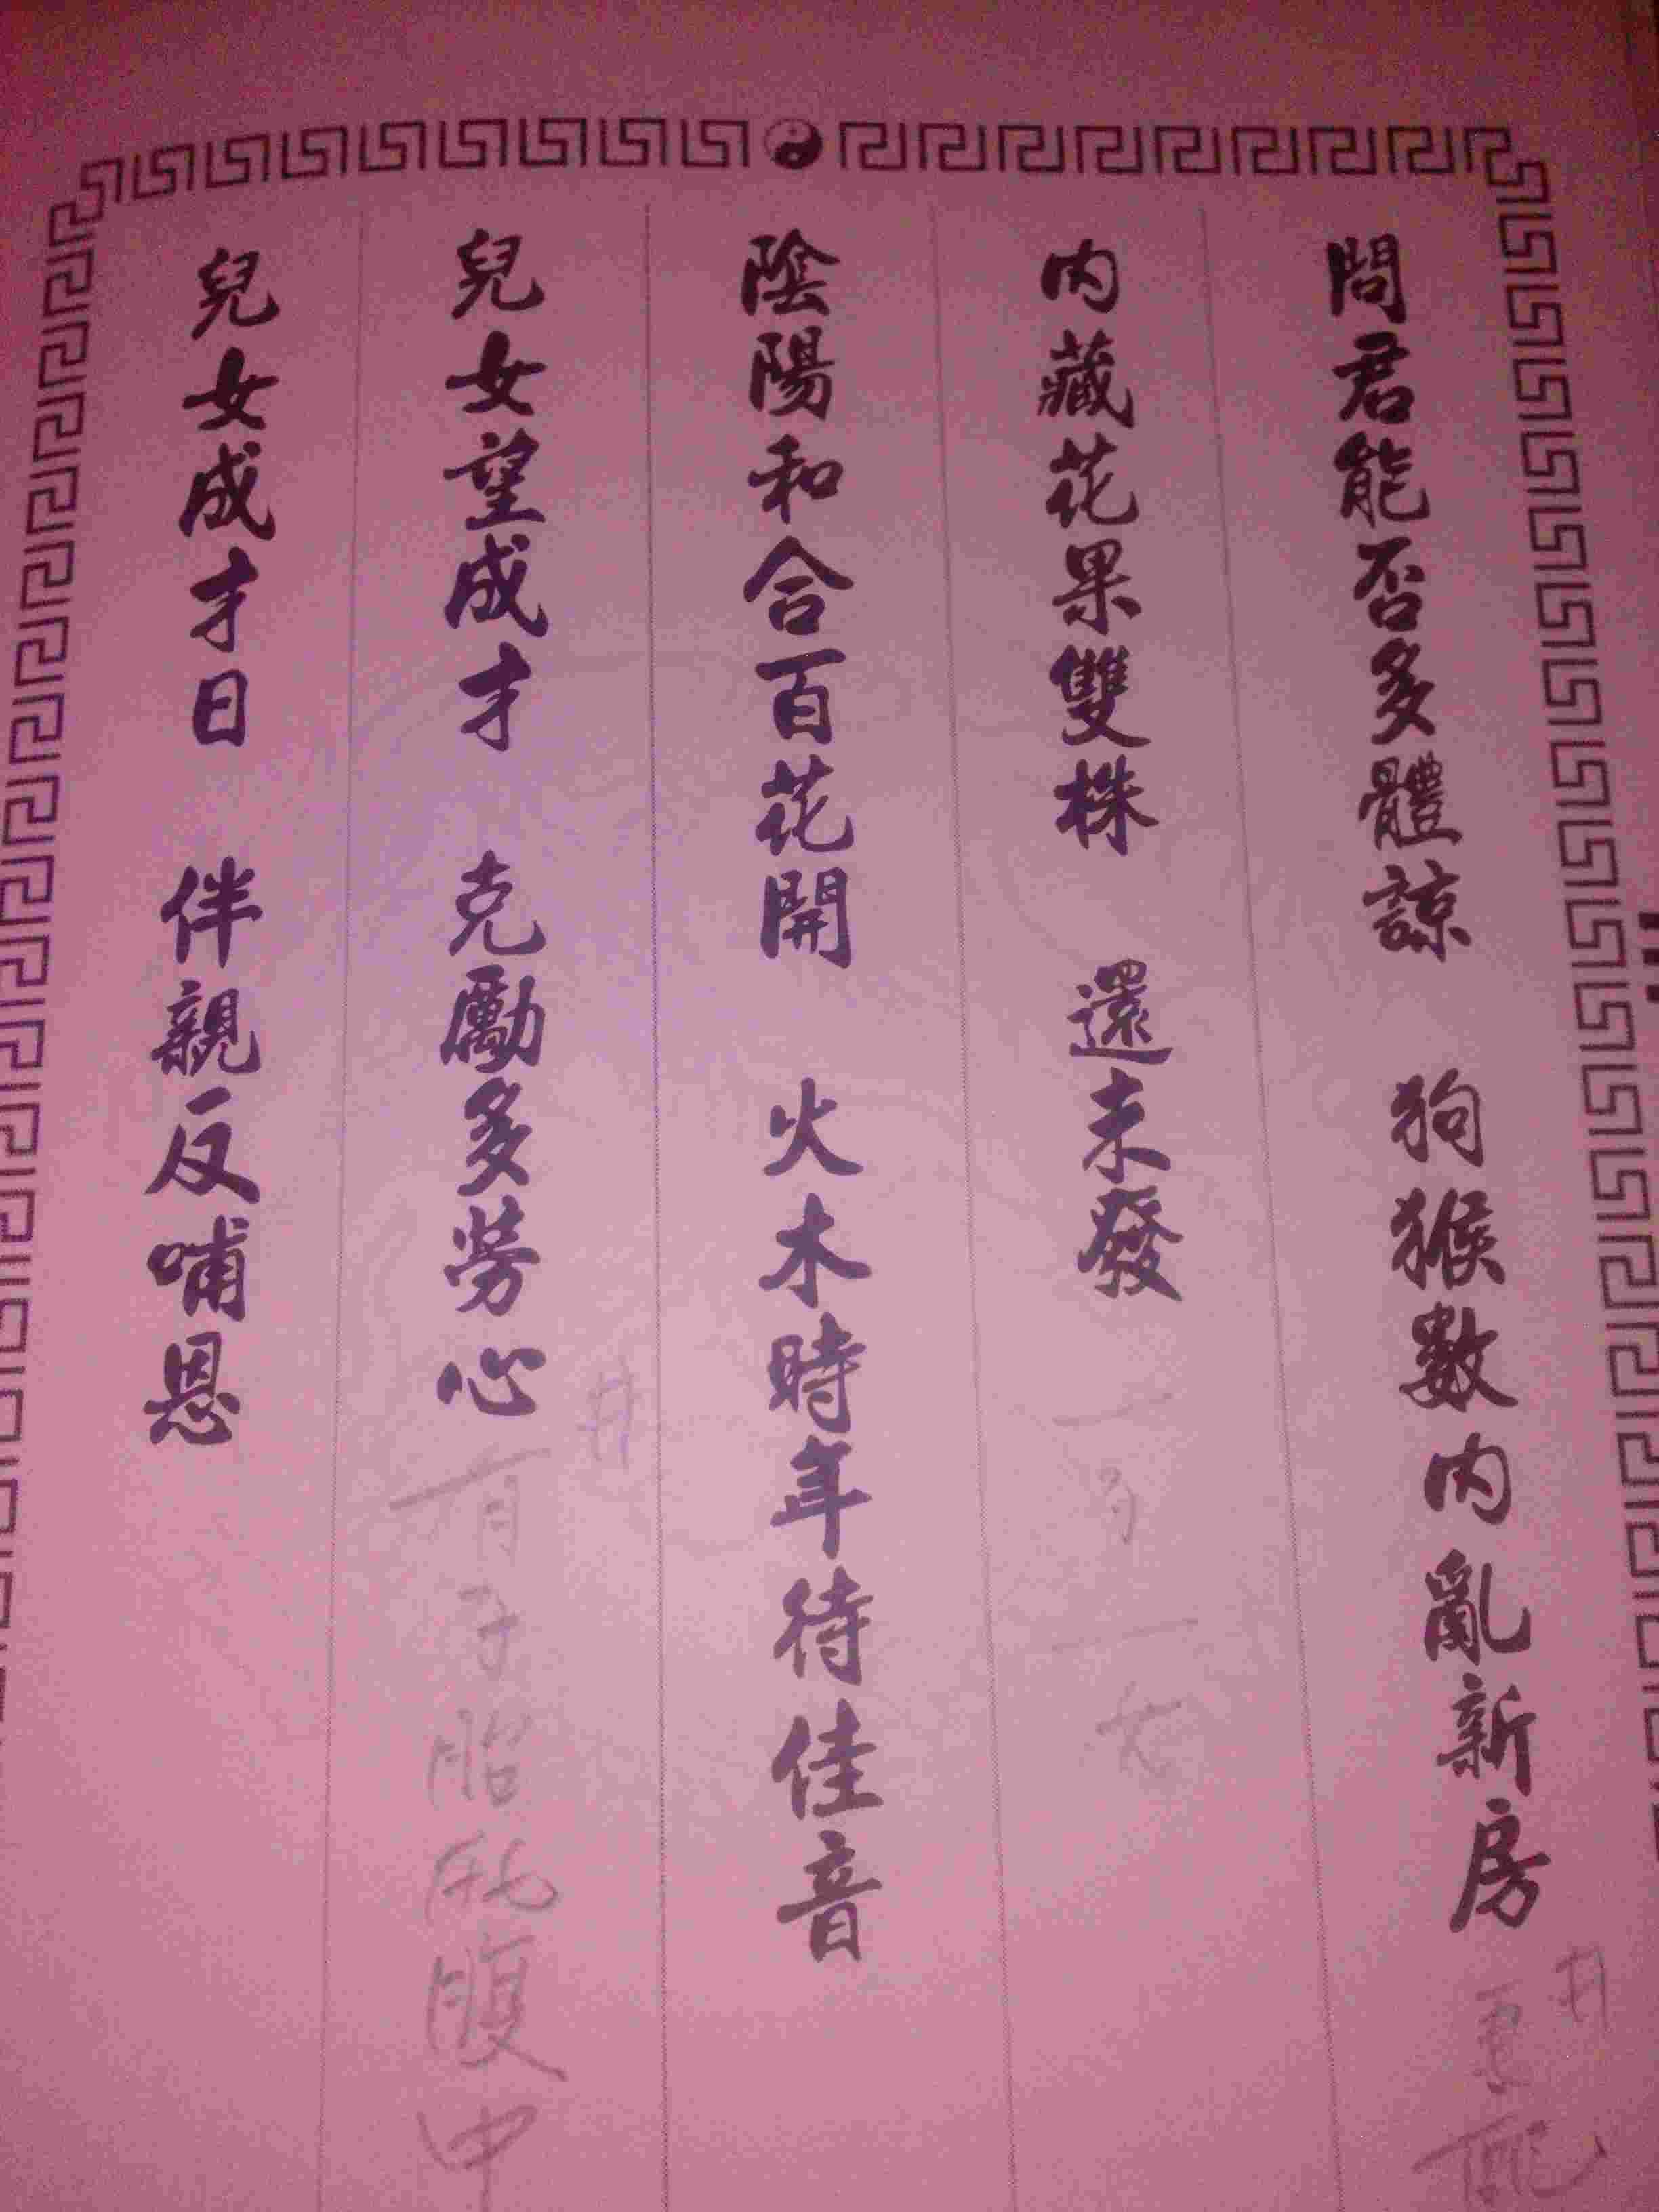 問君能否多體諒 狗猴數内亂新房
内藏花果雙株 還未發
陰陽和合百花開 火木時年待佳音
兒女望成才 克勵多勞心
有子胎 腹中
兒女成才日 伴親反哺恩